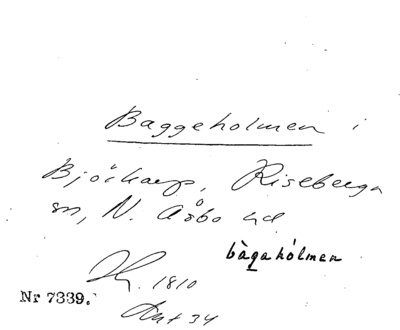 Baggeholmen i
Björkarp, Riseberga
sn, N. Åsbo hd
bàgahólmen
1810
Nr 7339.
Ant 34